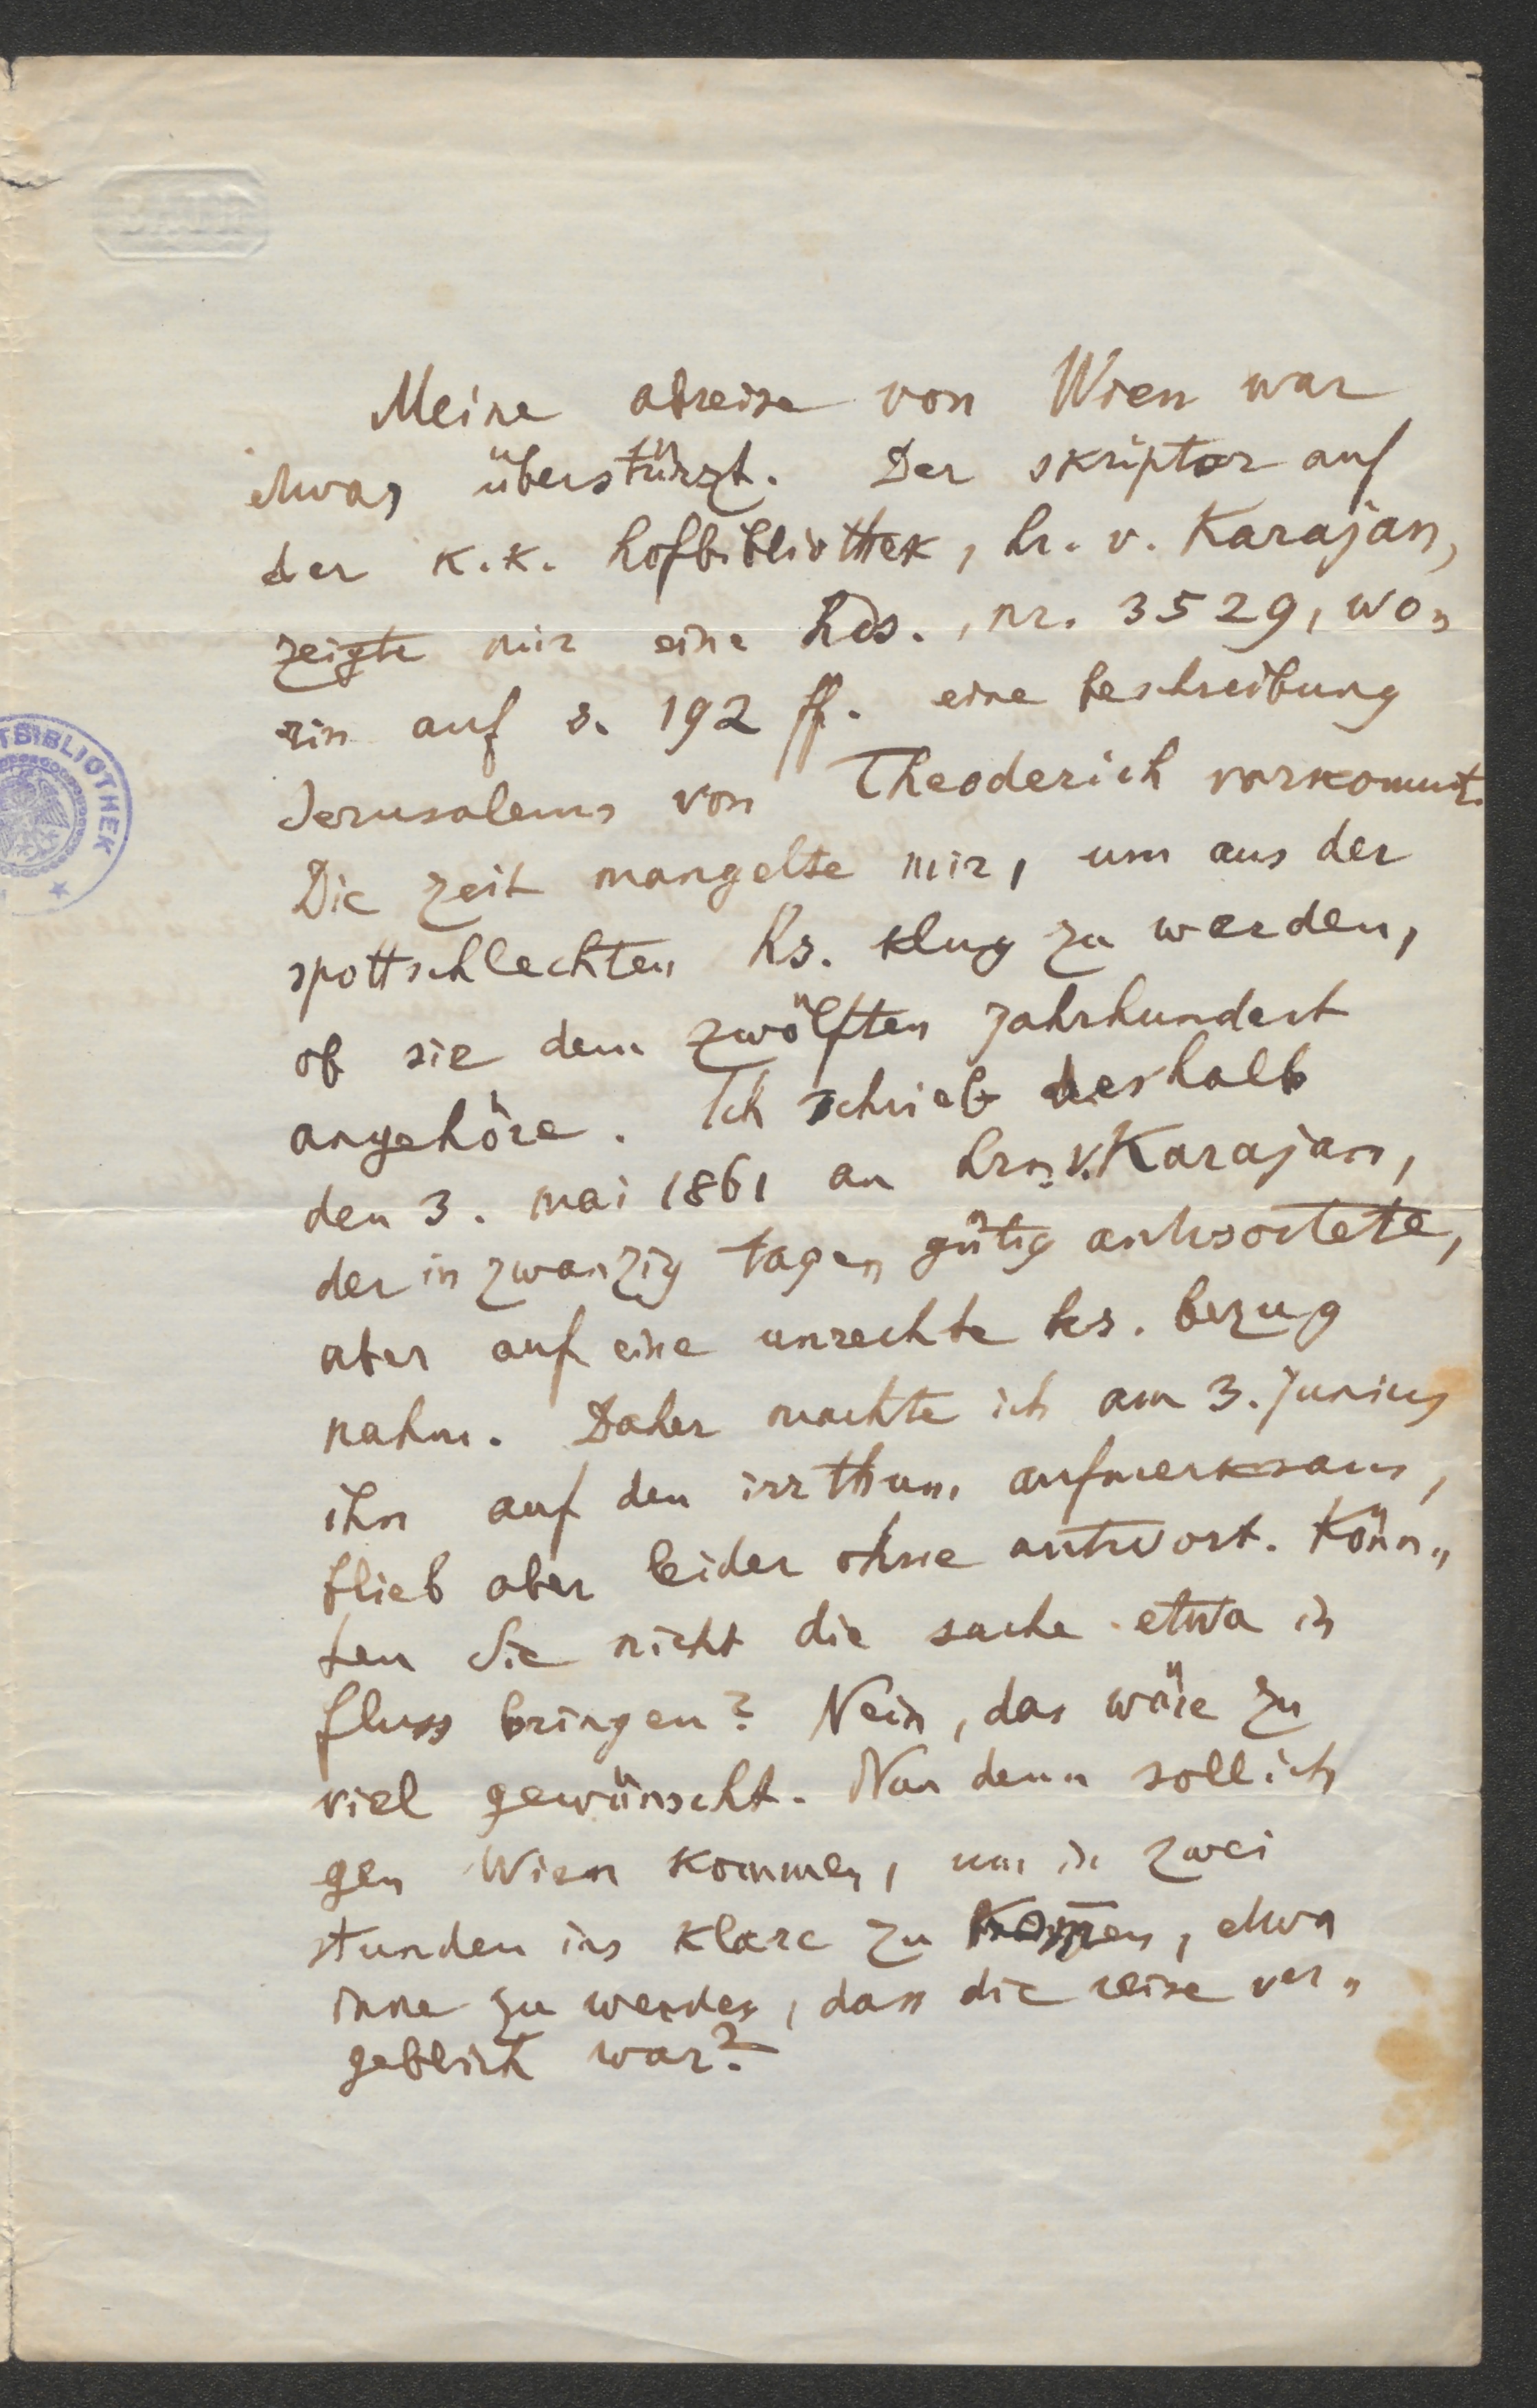 BATH
TBIBLIOTHEK
Meine abreise von Wien war
etwas überstürzt. Der skriptor auf
der k.k. hofbibliothek, hr. v. Karajan,
zeigte mir eine hds., nr. 3529, wo„
rin auf s. 192 ff. eine beschreibung
Jerusalems von Theoderich vorkommt.
Die zeit mangelte mir, um aus der
spottschlechten hs. klug zu werden,
ob sie dem zwölften jahrhundert
angehöre. Ich schrieb deshalb
den 3. mai 1861 an hrn. v. Karajan,
der in zwanzig tagen gütig antwortete,
aber auf eine unrechte hs. bezug
nahm. Daher machte ich am 3. Junius
ihn auf den irrthum aufmerksam,
blieb aber leider ohne antwort. Könn„
ten Sie nicht die sache etwa in
fluss bringen? Nein, das wäre zu
viel gewünscht. Nun denn soll ich
gen Wien kommen, um in zwei
stunden ins klare zu kommen, etwa
inne zu werden, dass die reise ver„
geblich war?